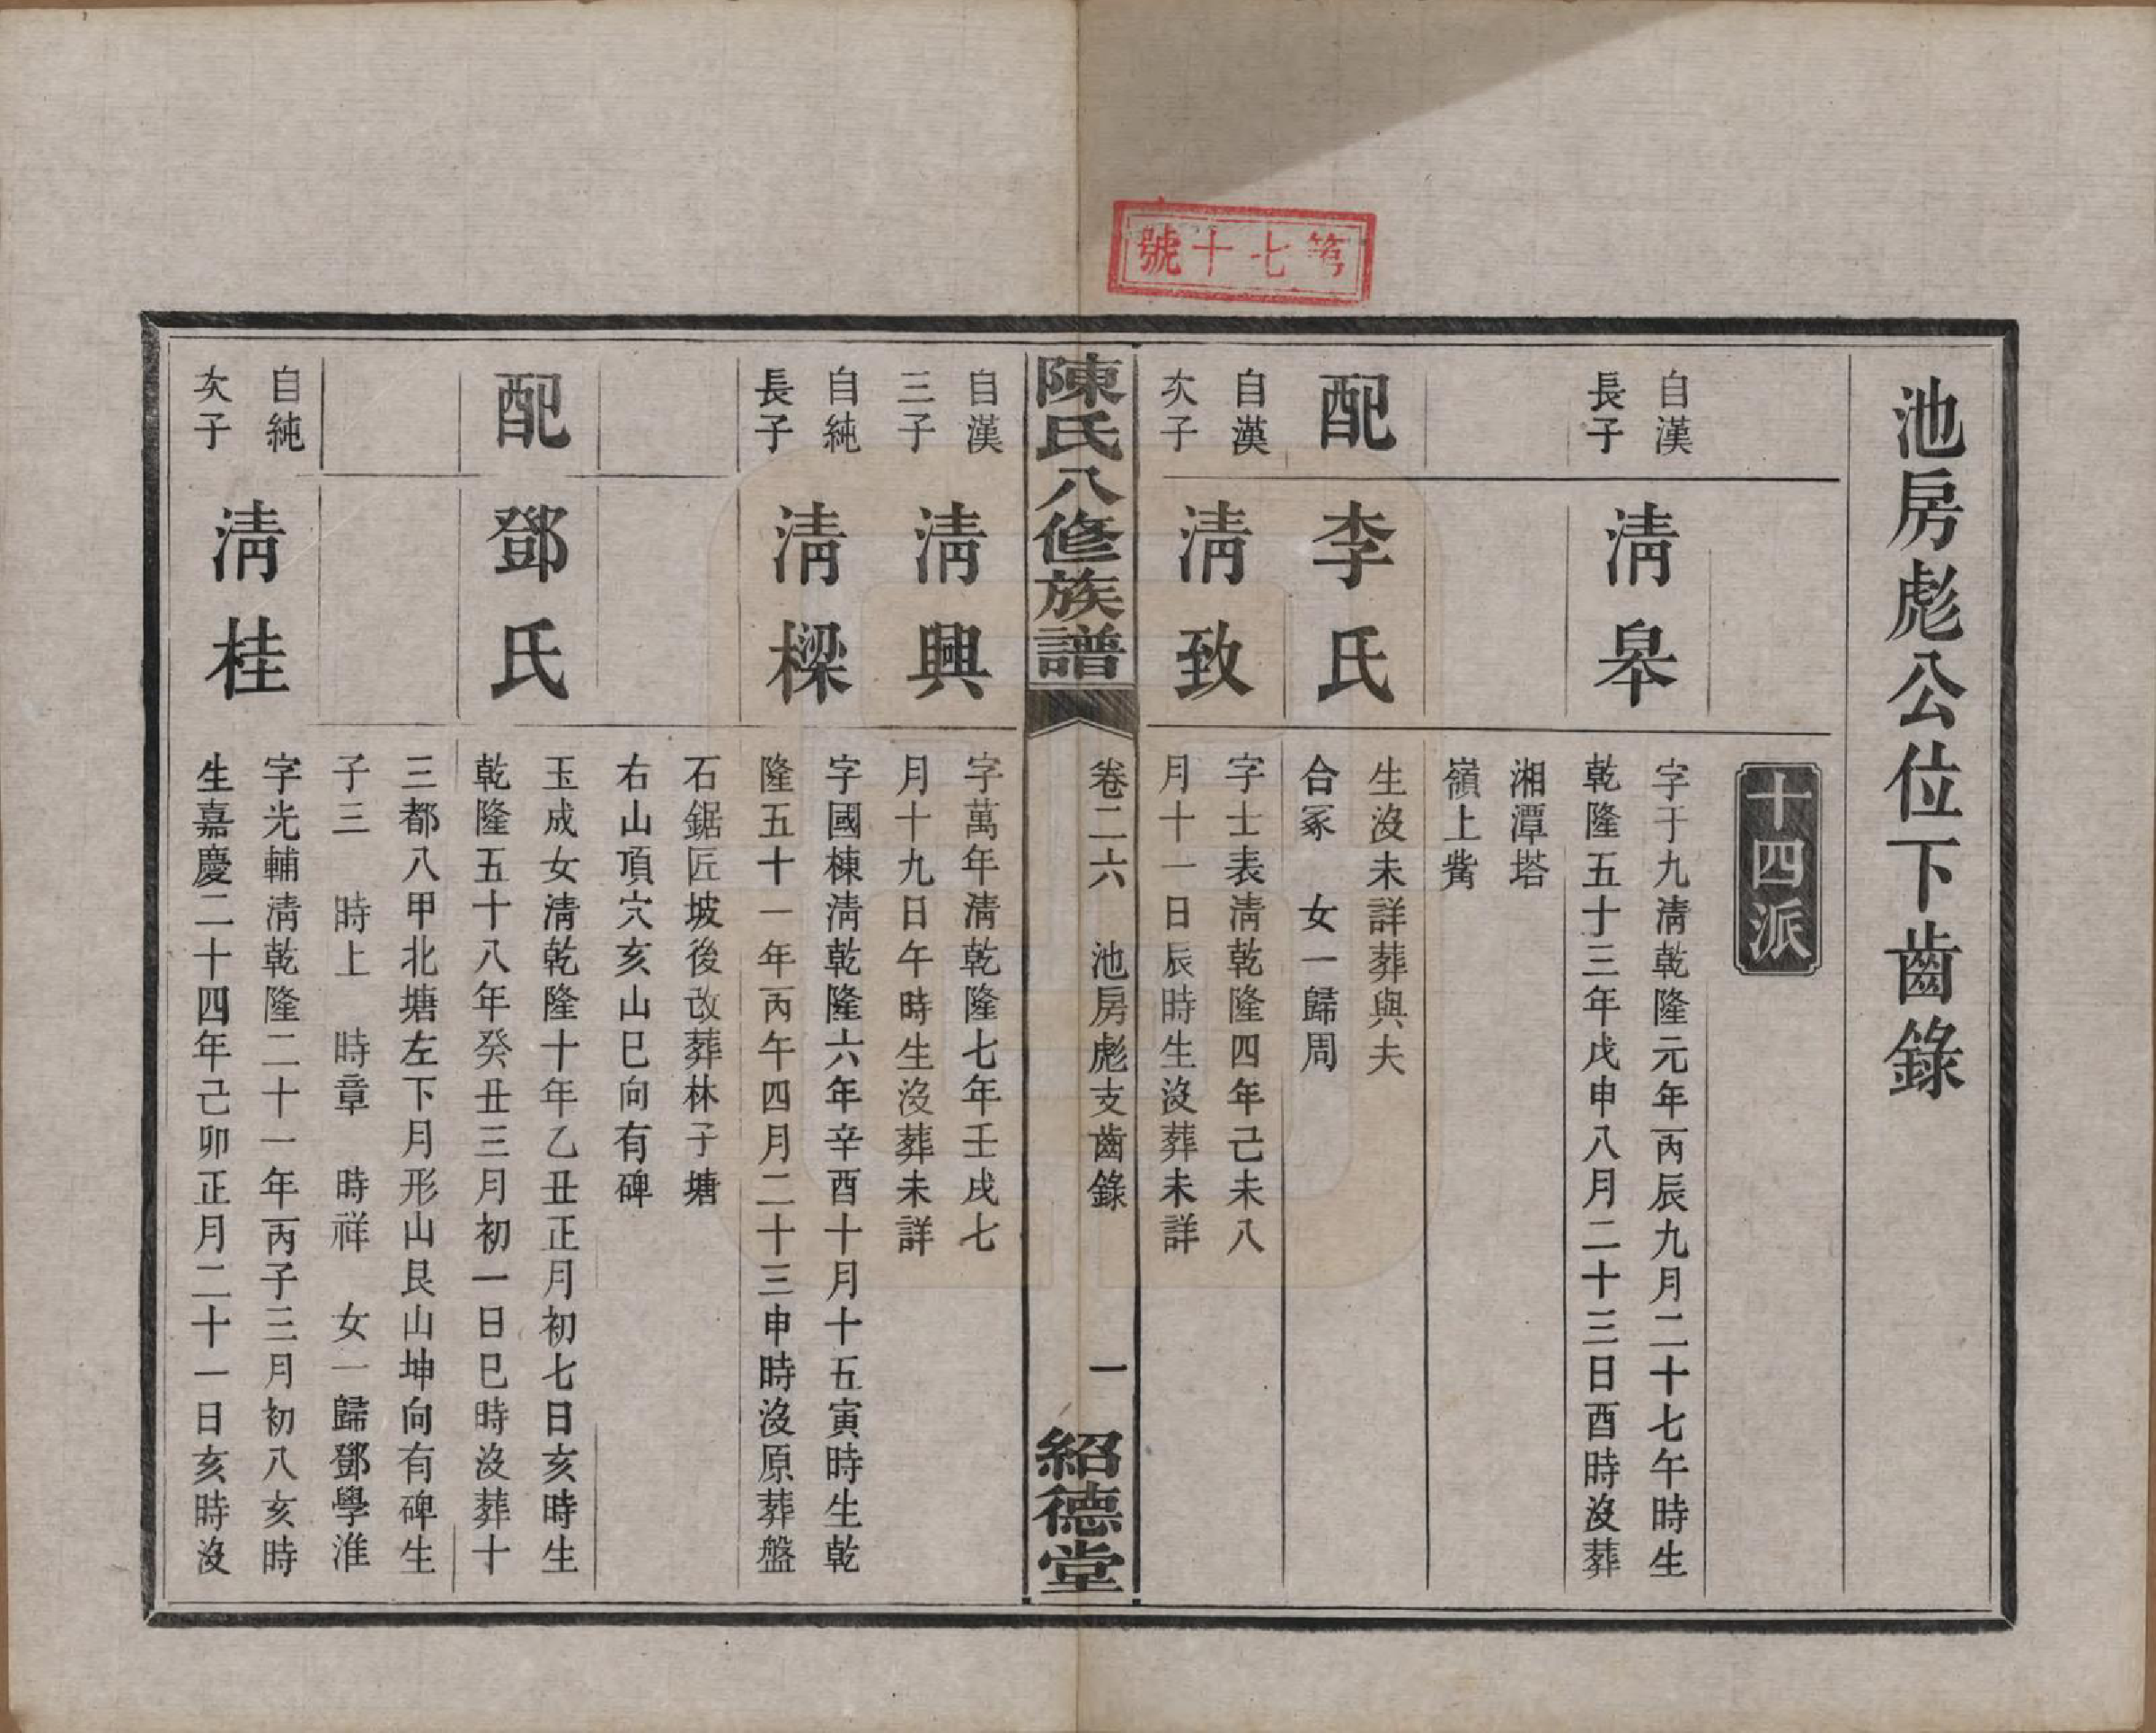 第七十號
池房彪公位下齒錄
十四派
自漢
長子
淸皋
字于九淸乾隆元年丙辰九月二十七午時生
乾隆五十三年戊申八月二十三日酉時沒葬
湘潭塔
嶺上觜
配
李氏
生沒未詳葬與夫
合冢　女一歸周
自漢
次子
淸致
字士表淸乾隆四年己未八
月十一日辰時生沒葬未詳
陳氏八修族譜
卷二六　池房彪支齒錄
一
紹德堂
自漢
三子
淸興
字萬年淸乾隆七年壬戌七
月十九日午時生沒葬未詳
自純
長子
淸樑
字國棟淸乾隆六年辛酉十月十五寅時生乾
隆五十一年丙午四月二十三申時沒原葬盤
石鋸匠坡後改葬林子塘
右山頂穴亥山巳向有碑
配
鄧氏
玉成女淸乾隆十年乙丑正月初七日亥時生
乾隆五十八年癸丑三月初一日巳時沒葬十
三都八甲北塘左下月形山艮山坤向有碑生
子三　時上　時章　時祥　女一歸鄧學淮
自純
次子
淸桂
字光輔淸乾隆二十一年丙子三月初八亥時
生嘉慶二十四年己卯正月二十一日亥時沒